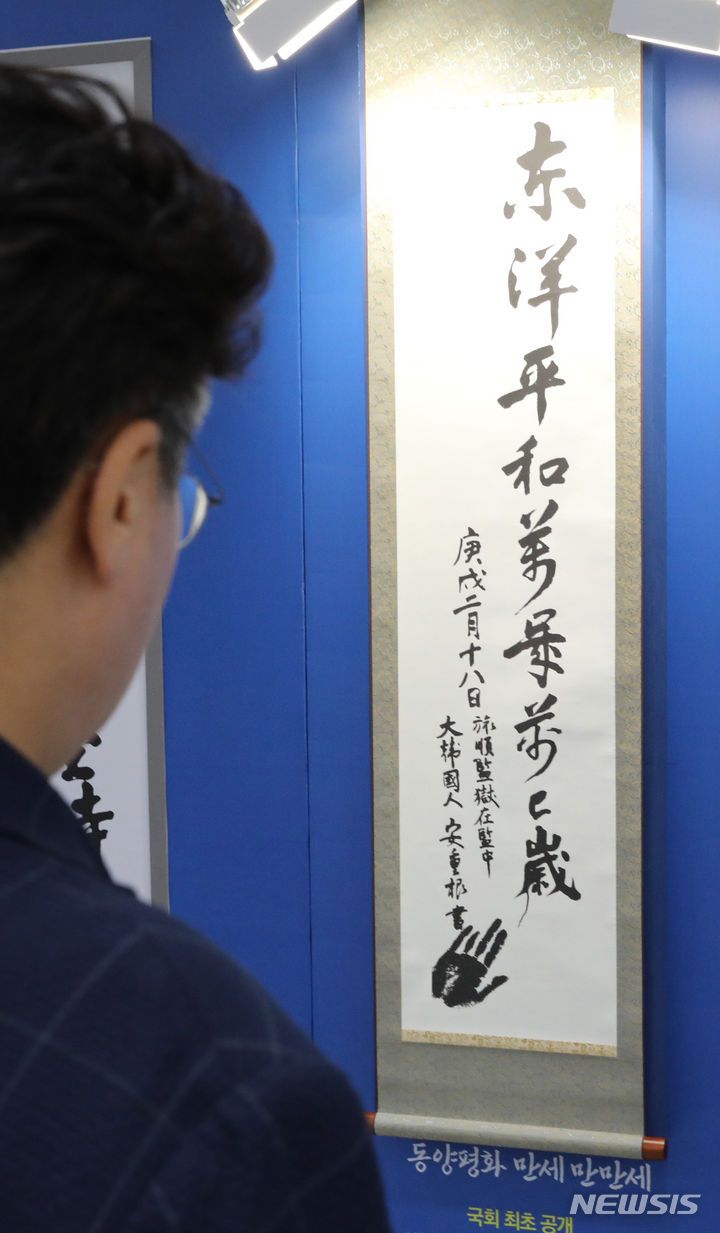 東洋平和萬歲萬々歲
庚戌二月十八日
旅順監獄在監中
大韓國人 安重根 書
동양평화 만세 만만세
국회 최초 공개
NEWSIS